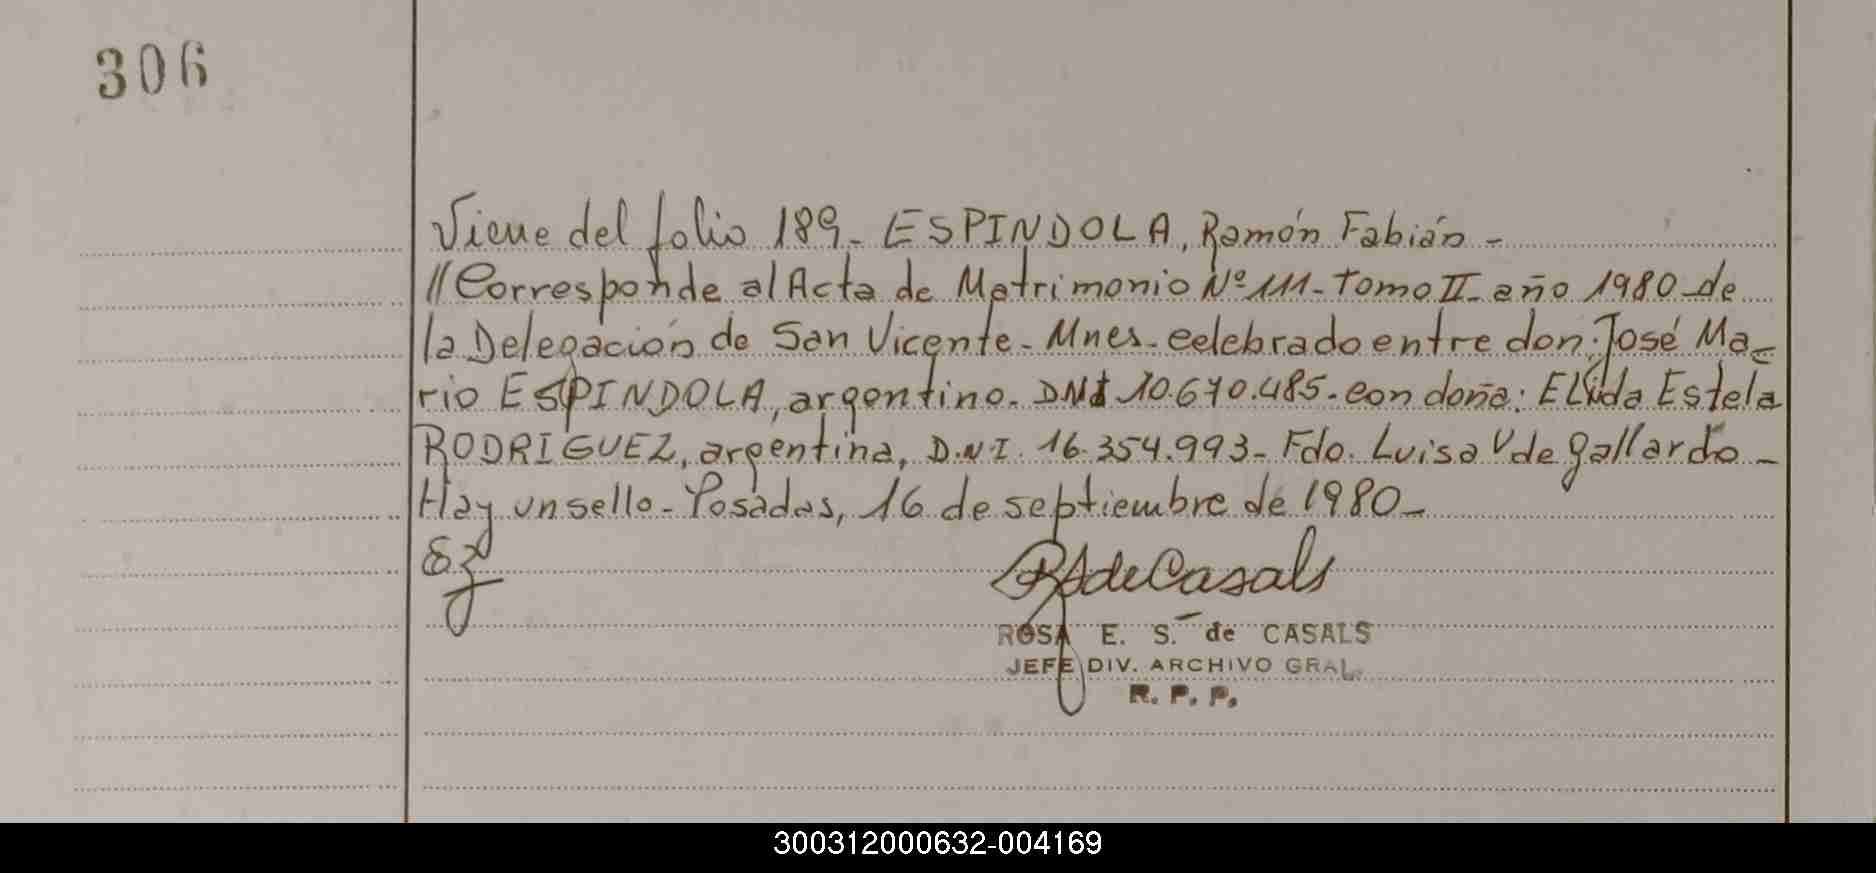 306
Viene del folio 189- ESPINDOLA, Ramón Fabián -
//Corresponde al Acta de Matrimonio Nº 111- Tomo II- año 1980- de
la Delegación de San Vicente- Mnes- celebrado entre don: José Ma-
rio ESPINDOLA, argentino- DNI 10.670.485- con doña: Elvida Estela
RODRIGUEZ, argentina, D.N.I. 16.354.993- Fdo. Luisa V de Gallardo-
Hay un sello- Posadas, 16 de septiembre de 1980-
RS de Casals
ROSA E. S. de CASALS
JEFE DIV. ARCHIVO GRAL.
R. P. P.
300312000632-004169